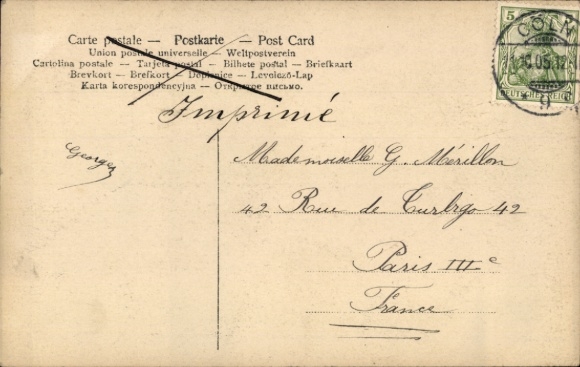 Carte postale — Postkarte — Post Card
Union postale universelle — Weltpostverein
Cartolina postale — Tarjeta postal — Bilhete postal — Briefkaart
Brevkort — Brefkort — Dopisnice — Levelező-Lap
Karta korespondencyjna — Открытое письмо.
Imprimé
Georges
Mademoiselle G. Mérillon
42 Rue de Turbigo 42
Paris IIIe
France
5
CÖLN
DEUTSCHES REICH
9